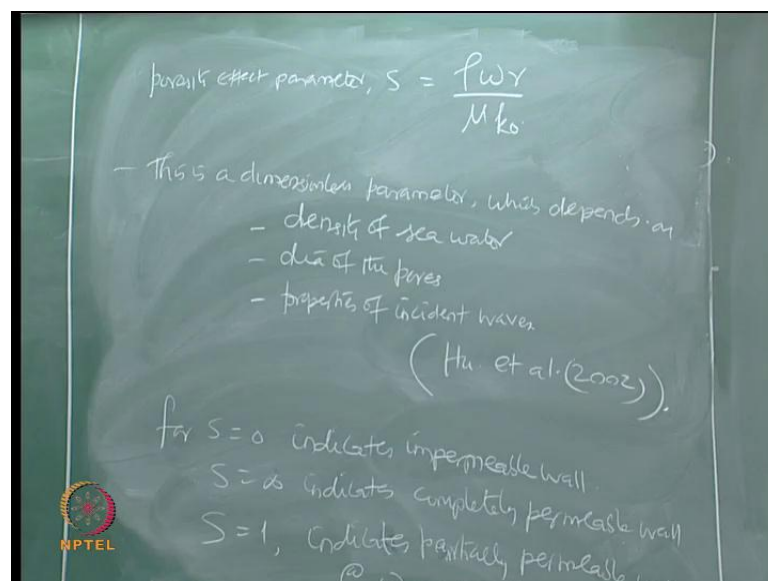 porosity effect parameter, S = ρωγ / μk₀
- This is a dimensionless parameter, which depends on
- density of sea water
- dia of the pores
- properties of incident waves
(Hu et al. (2002)).
for S = 0 indicates impermeable wall.
S = ∞ indicates completely permeable wall
S = 1, indicates partially permeable
NPTEL